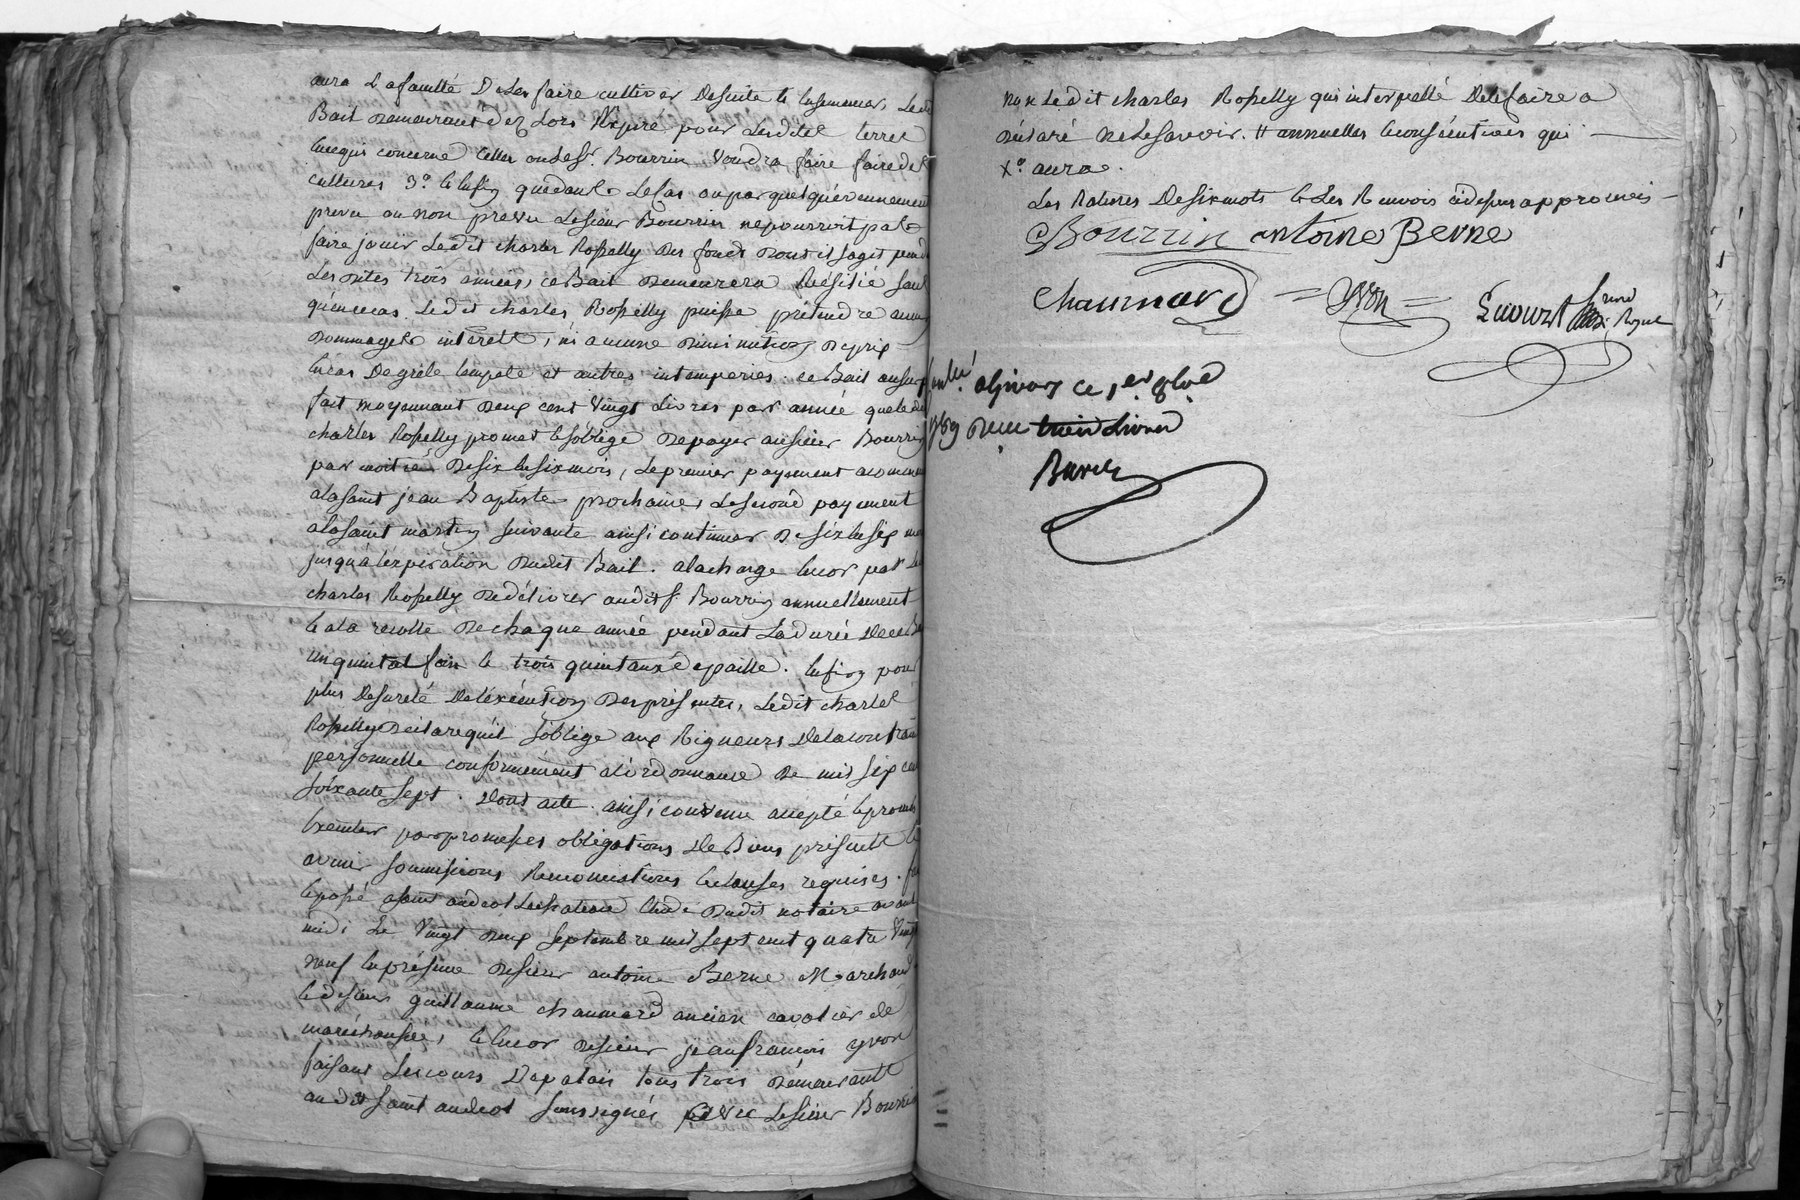 aura La faculté De les faire cultiver De suite & lusemencer, Ledit
Bail Demeurant dez Lors Expiré pour Lesdites terres
En cequi concerne Celles ou Le Sr. Bourrin Voudra faire faire des
cultures 3°. & Enfin que dans Le Cas ou par quelqu'évennement
prevu ou non prévu Lesieur Bourrin ne pourroit pas
faire jouir Ledit charles Ropelly des fonds Dont il sagit pend
Les dites trois années, ce Bail Demeurera Résilié sans
qu'encecas Ledit charles Ropelly puisse prétendre aucun
Dommages intérêts, ni aucune Diminution De prix
En cas De grêle tempete et autres intemperies. ce Bail ainsi
fait moyennant Deux cent Vingt Livres par année que ledit
charles Ropelly promet & soblige De payer ausieur Bourrin
par moitié De six En six mois, Le premier payement a commen
alasaint jean Baptiste prochaine, Le second payement
alasaint martin suivante ainsi continuer De six En six mois
jusqu'a l'expiration Dudit Bail. alacharge Encor par Le
charles Ropelly De délivrer audit Sr. Bourrin annuellement
& a la recolte De chaque année pendant La durée De ce Bail
un quintal foin & trois quintaux de paille. Enfin pour
plus De sureté De l'exécution Des présentes, Ledit charles
Ropelly Déclare qu'il soblige aux Rigueurs De la contrainte
personnelle conformément a l'ordonnance De mil six cent
soixante sept. Dont acte. ainsi convenu accepté & promis
Exécuter par promesses obligations De Biens présents &
avenir soumissions Renonciations & clauses requises. fait
& passé a saint andeol Le chateau Etude Dudit notaire avant
midi Le Vingt Deux septembre mil sept cent quatre Vingt
neuf En présence De sieur antoine Berne Marchand
& De sieur guillaume chaumard ancien cavalier de
maréchaussée, & Encor De sieur jean francois yvon
faisant Les cours De palais tous trois Demeurants
audit saint andeol soussignés avec Lesieur Bourrin
non Ledit charles Ropelly qui interpellé De le faire a
Déclaré ne Le savoir. # annuelles & conséutives qui
x°. aura.
Les Ratures De six mots & Les Renvois ci dessus approuvés
Bourrin antoine Berne
Chaumard = Yvon =
Controlé a Givors ce 1er. 8bre
1789 Recu Livres